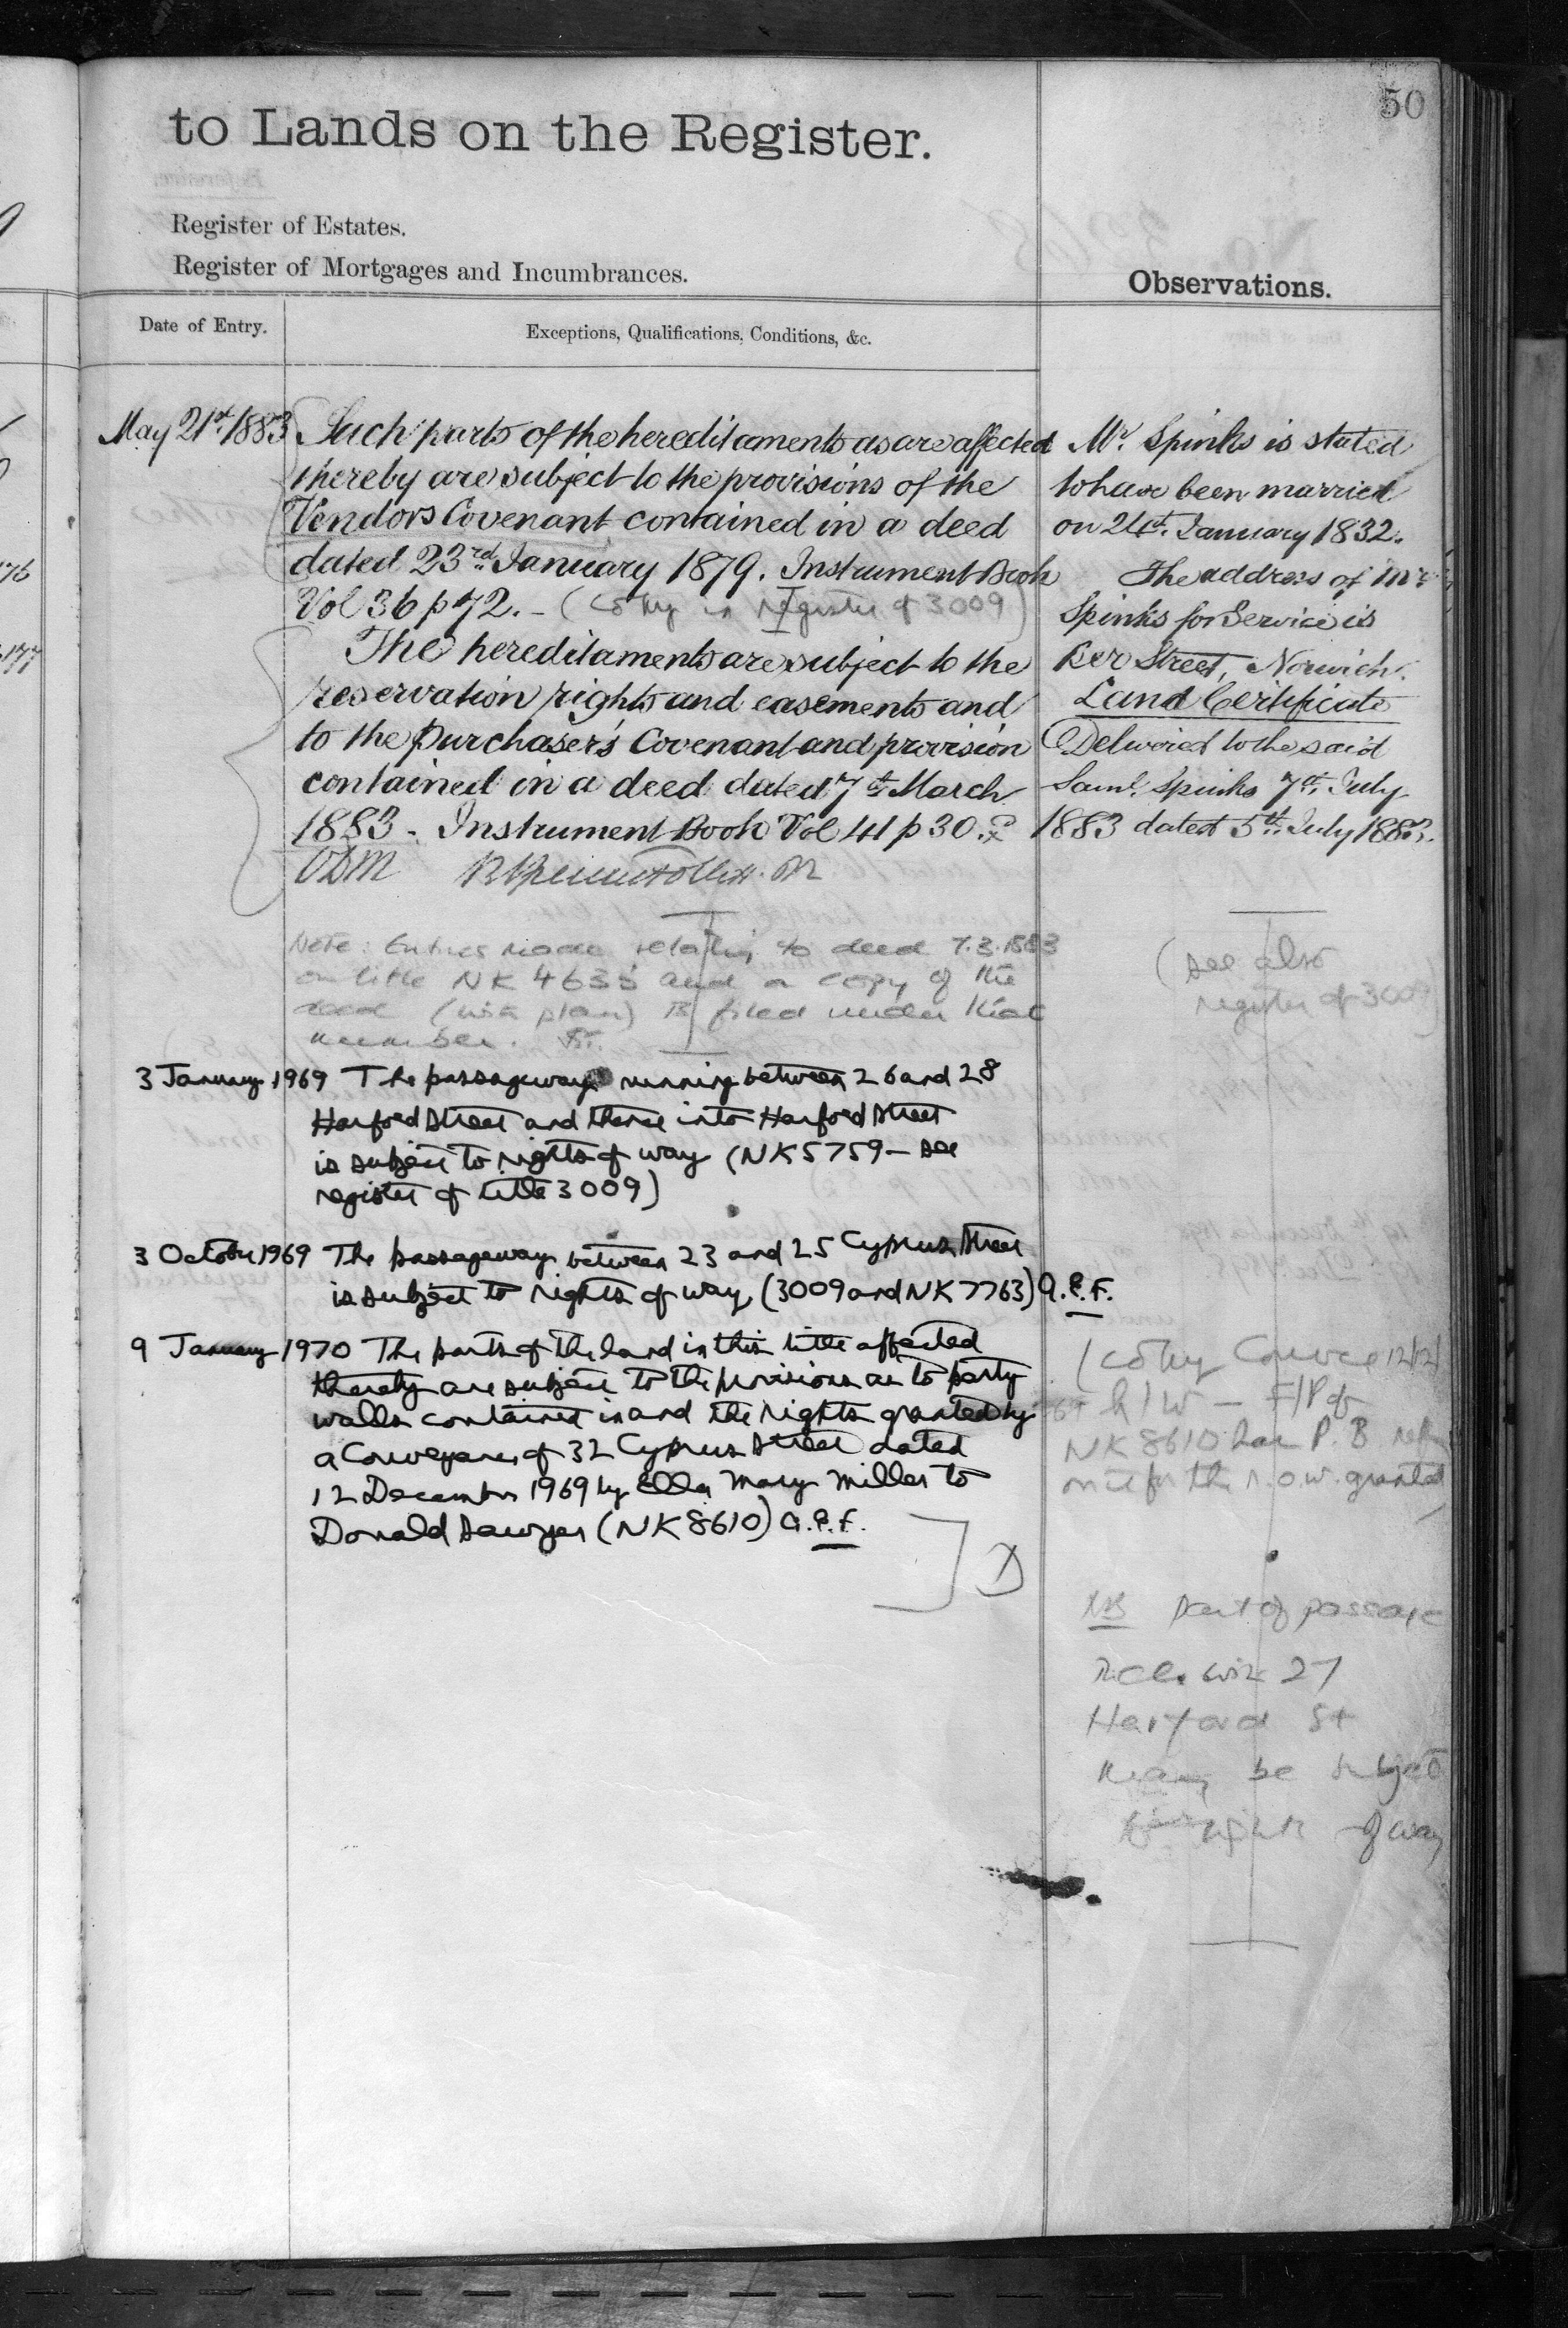 50
to Lands on the Register.
Register of Estates.
Register of Mortgages and Incumbrances.
Observations.
Date of Entry.
Exceptions, Qualifications, Conditions, &c.
May 21st 1883 Such parts of the hereditaments as are affected
thereby are subject to the provisions of the
Vendors Covenant contained in a deed
dated 23rd January 1879. Instrument Book
Vol 36 p 72. – (Copy in register of 3009)
The hereditaments are subject to the
reservation rights and easements and
to the Purchaser's Covenant and provision
contained in a deed dated 7th March
1883 - Instrument Book Vol 41 p 30.
Note: Entries made relating to deed 7.3.1883
on title NK 4633 and a copy of the
deed (with plan) is filed under that
number.
3 January 1969 The passageway running between 26 and 28
Harford Street and thence into Harford Street
is subject to rights of way (NK5759 – see
register of title 3009)
3 October 1969 The passageway between 23 and 25 Cyprus Street
is subject to rights of way, (3009 and NK7763) G.P.F.
9 January 1970 The parts of the land in this title affected
thereby are subject to the provisions as to party
walls contained in and the rights granted by
a Conveyance of 32 Cyprus Street dated
12 December 1969 by Ella Mary Miller to
Donald Sawyer (NK8610) G.P.F.
D
Mr. Spinks is stated
to have been married
on 24th January 1832.
The address of Mr
Spinks for Service is
Ber Street, Norwich.
Land Certificate
Delivered to the said
Saml. Spinks 7th July
1883 dated 5th July 1883.
(see also
register of 3009)
(Copy Convce 12/12/
69 h/w – F/P of
NK8610 has P.B
for the r.o.w. granted
NB Part of passage
27
Harford St
may be subject
to rights of way